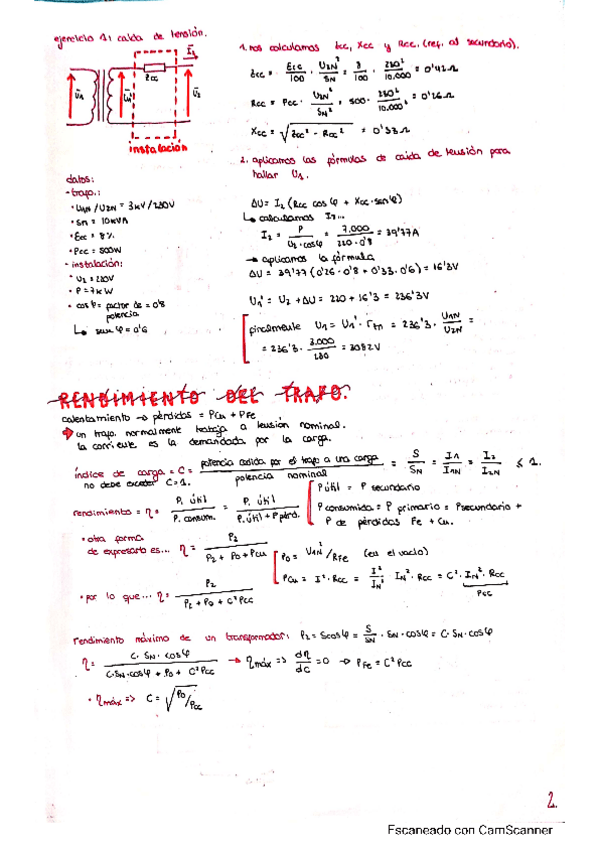 ejercicio 1: caída de tensión.
Zcc
I2
U1
U1'
U2
instalación
datos:
- trafo.:
• U1N / U2N = 3kV / 230V
• Sn = 10kVA
• Ecc = 8%
• Pcc = 500W
- instalación:
• U2 = 220V
• P = 7kW
• cos φ = factor de = 0'8
potencia
↳ sen φ = 0'6
1. nos calculamos Zcc, Xcc y Rcc. (ref. al secundario).
Zcc = Ecc/100 · U2N²/SN = 8/100 · 230²/10.000 = 0'42 Ω
Rcc = Pcc · U2N²/SN² = 500 · 230²/10.000² = 0'26 Ω
Xcc = √(Zcc² - Rcc²) = 0'33 Ω
2. aplicamos las fórmulas de caída de tensión para
hallar U1.
ΔU = I2 (Rcc cos φ + Xcc · sen φ)
↳ calculamos I2...
I2 = P/(U2 · cos φ) = 7.000/(220 · 0'8) = 39'77A
→ aplicamos la fórmula
ΔU = 39'77 (0'26 · 0'8 + 0'33 · 0'6) = 16'3V
U1' = U2 + ΔU = 220 + 16'3 = 236'3V
finalmente U1 = U1' · rtn = 236'3 · U1N/U2N =
= 236'3 · 3.000/230 = 3082V
RENDIMIENTO DEL TRAFO.
calentamiento → pérdidas = PCu + PFe
→ un trafo. normalmente trabaja a tensión nominal.
la corriente es la demandada por la carga.
índice de carga = C = potencia cedida por el trafo a una carga / potencia nominal = S/SN = I1/I1N = I2/I2N ≤ 1.
no debe exceder C=1.
rendimiento = η = P. útil / P. consum. = P. útil / P. útil + P pérd.
P útil = P secundario
P consumida = P primario = Psecundario +
P de pérdidas Fe + Cu.
• otra forma
de expresarlo es... η = P2 / P2 + P0 + PCu
P0 = U1N²/RFe (en el vacío)
PCu = I² · Rcc = I²/IN² · IN² · Rcc = C² · IN² · Rcc
Pcc
• por lo que... η = P2 / P2 + P0 + C²Pcc
rendimiento máximo de un transformador: P2 = S cos φ = S/SN · SN · cos φ = C · SN · cos φ
η = C · SN · cos φ / C · SN · cos φ + P0 + C²Pcc → ηmáx => dη/dc = 0 → PFe = C²Pcc
• ηmáx => C = √(P0/Pcc)
2.
Escaneado con CamScanner